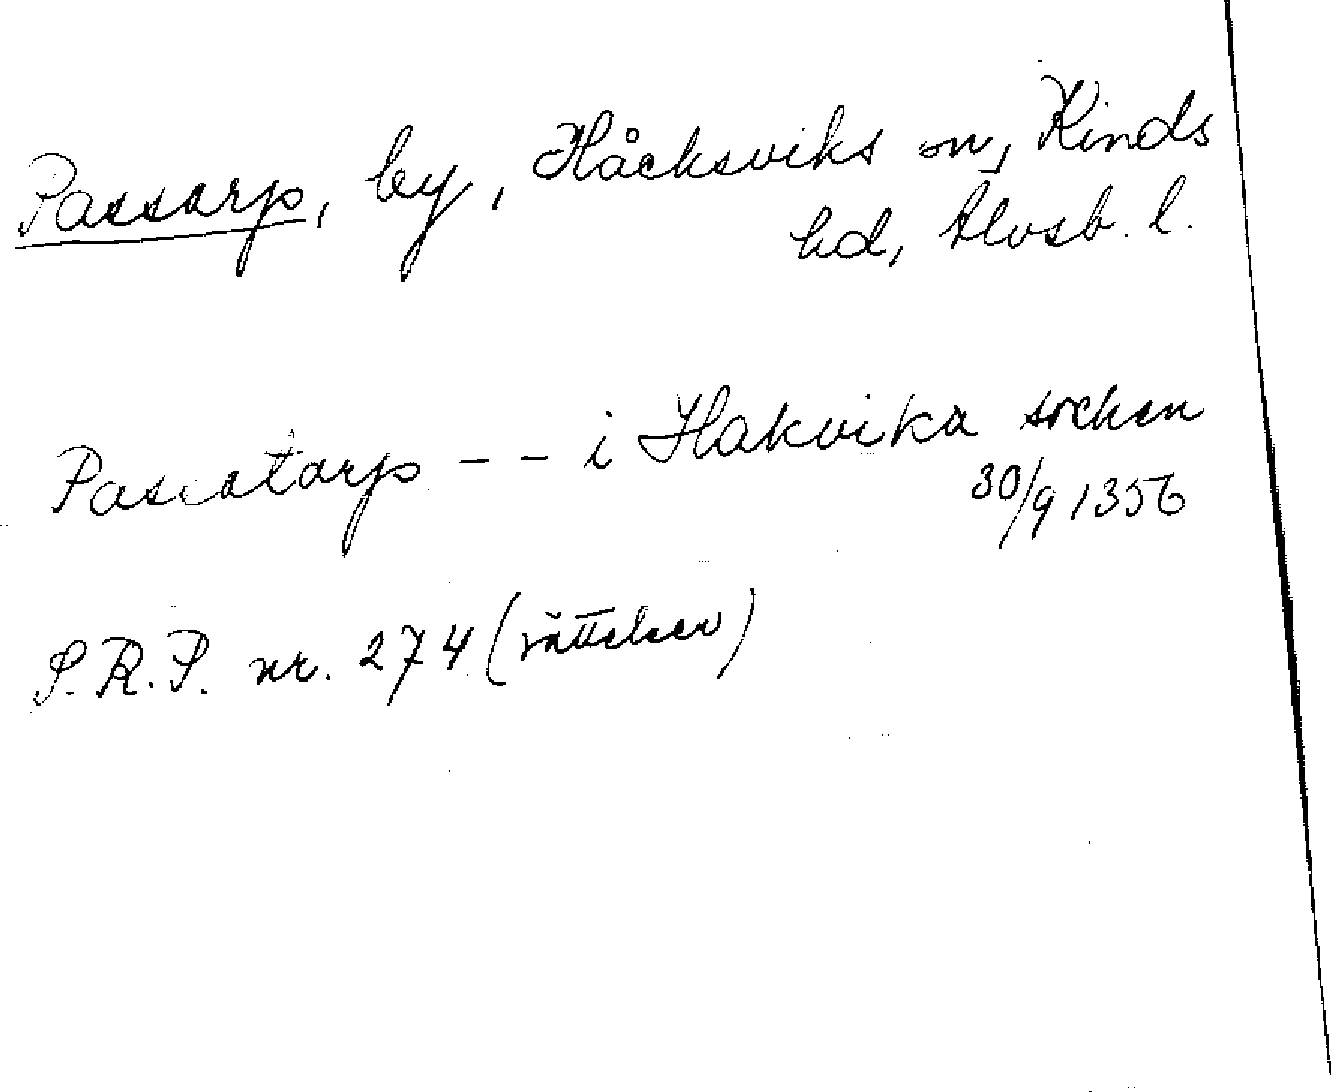 Passarp, by, Håcksviks sn, Kinds
hd, Älvsb. l.
Passatarp -- i Hakvika sochen
30/9 1356
S.R.P. nr. 274 (rättelser)